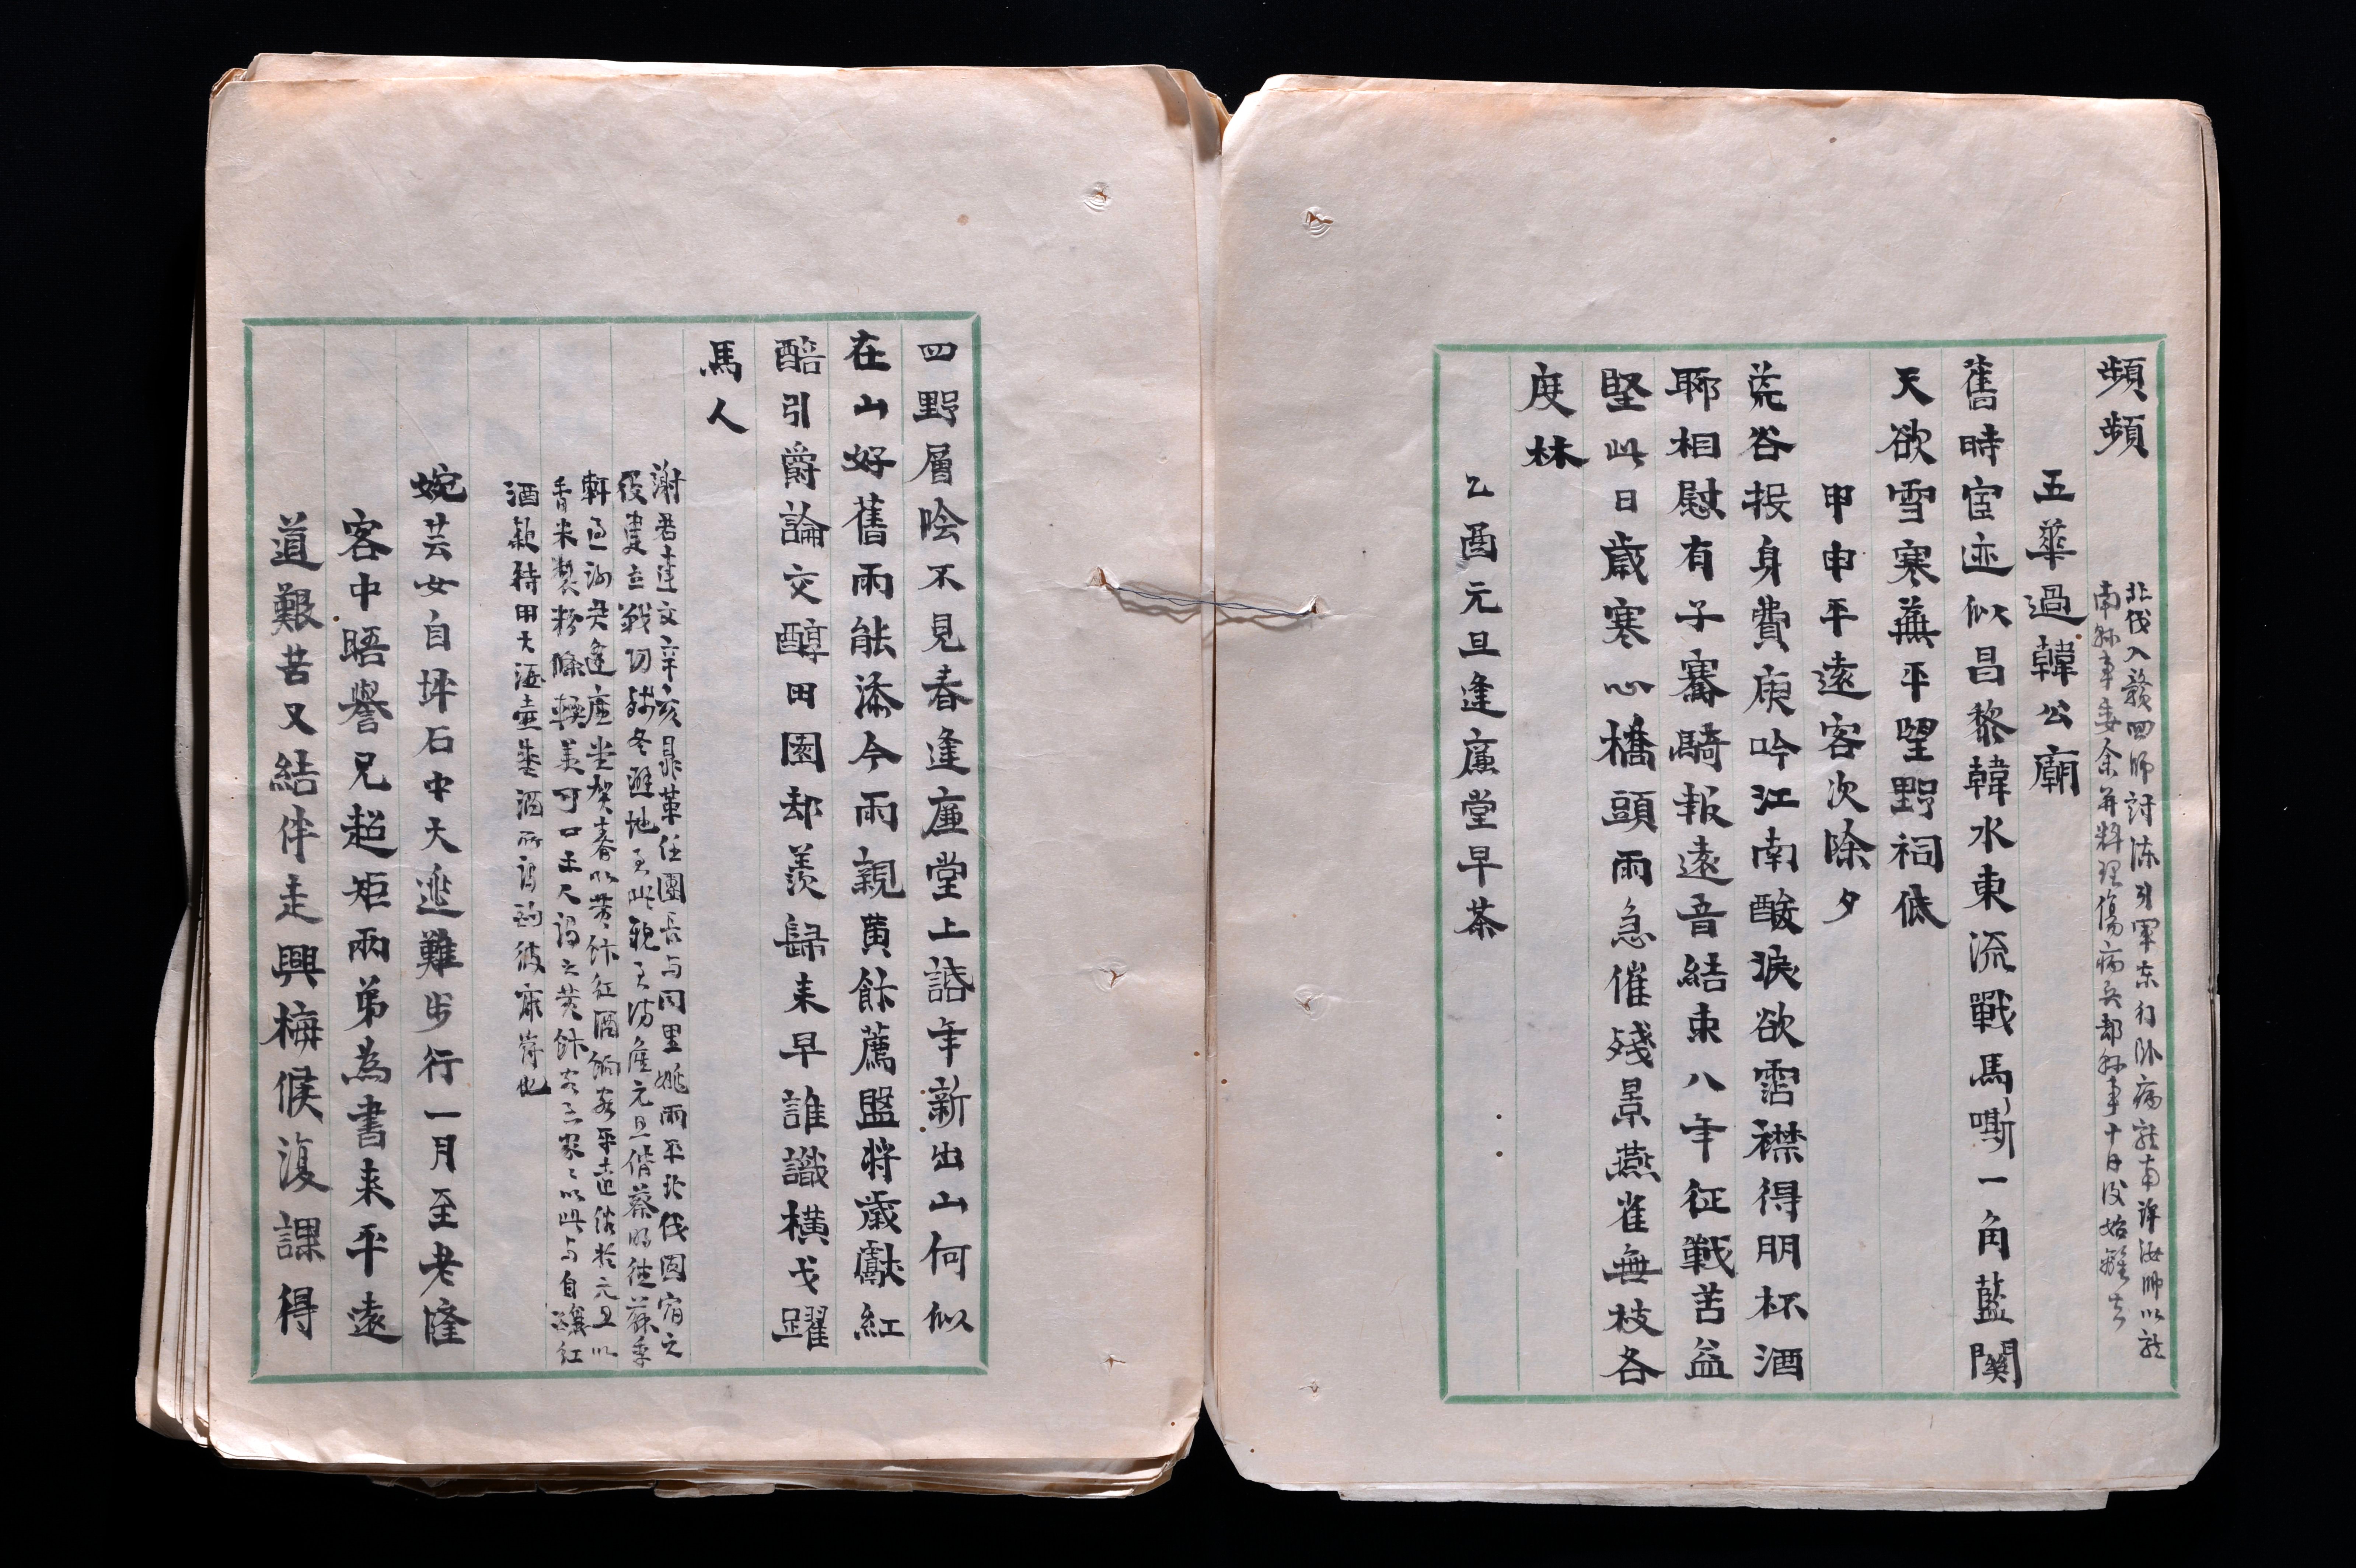 頻頻
北伐入贛四師討陳別軍東行臥病龍南許汝師以龍
南縣事委余並料理傷病兵部縣事十日後始離去
五華過韓公廟
舊時宦迹似昌黎韓水東流戰馬嘶一角藍關
天欲雪寒蕪平望野祠低
甲申平遠客次除夕
荒谷投身費庾吟江南酸淚欲霑襟得朋杯酒
聊相慰有子騫騎報遠音結束八年征戰苦益
堅此日歲寒心橋頭雨急催殘景燕雀無枝各
度林
乙酉元旦逢廬堂早茶
四野層陰不見春逢廬堂上話年新出山何似
在山好舊雨能添今雨親黄餅薦盤將歲獻紅
醅引爵論交醇田園却羨歸來早誰識橫戈躍
馬人
謝君達文辛亥鼎革任團長與同里姚雨平北伐固宿之
役建立戰功殘冬避地至此親至訪廬元旦偕蔡
軒過逢廬坐賀春以黄餅紅酒餉客平遠俗於元旦以
香米製粉條軟美可口土人謂之黄餅家家以此与自釀紅
酒款待用大酒壺盛酒
婉芸女自坪石中大逃難步行一月至老隆
客中晤譽兄超矩兩弟為書來平遠
道艱苦又結伴走興梅候復課得